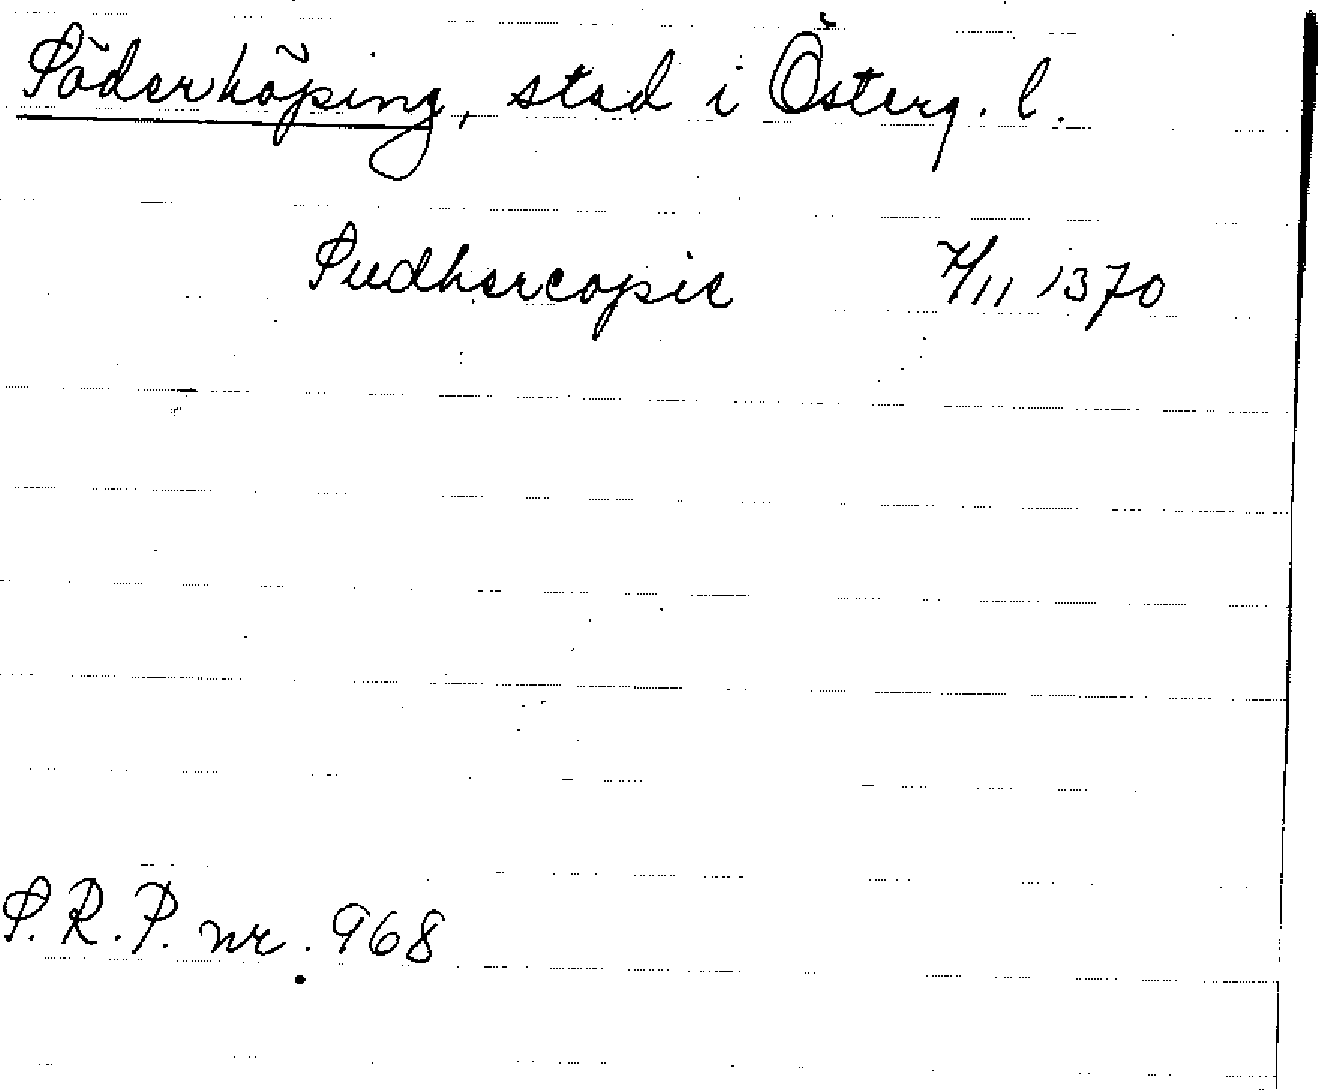 Söderköping, stad i Österg. l.
Sudhercopie 7/11 1370
S.R.P. nr. 968